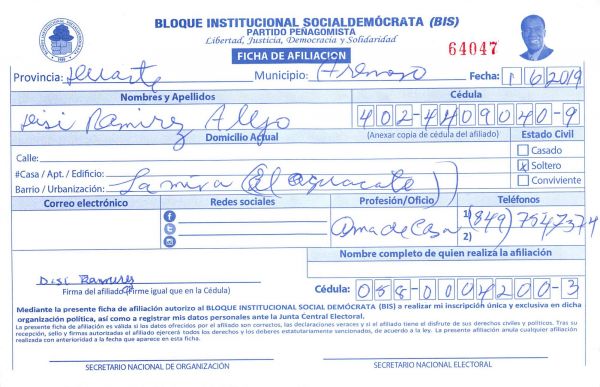 BLOQUE INSTITUCIONAL SOCIALDEMÓCRATA (BIS)
PARTIDO PEÑAGOMISTA
Libertad, Justicia, Democracia y Solidaridad
FICHA DE AFILIACION
64047
Provincia: Duarte Municipio: Arenoso Fecha: 1 6 2019
Nombres y Apellidos Cédula
Disi Ramirez Alejo 402-4409040-9
Domicilio Actual (Anexar copia de cédula del afiliado) Estado Civil
Calle: Casado
#Casa / Apt. / Edificio: x Soltero
Barrio / Urbanización: La mira (El aguacate) Conviviente
Correo electrónico Redes sociales Profesión/Oficio Teléfonos
Ama de Casa 1) (849) 7547374
2)
Nombre completo de quien realiza la afiliación
Disi Ramirez
Firma del afiliado (Firme igual que en la Cédula) Cédula: 058-0004200-3
Mediante la presente ficha de afiliación autorizo al BLOQUE INSTITUCIONAL SOCIAL DEMÓCRATA (BIS) a realizar mi inscripción única y exclusiva en dicha
organización política, así como a registrar mis datos personales ante la Junta Central Electoral.
La presente ficha de afiliación es válida si los datos ofrecidos por el afiliado son correctos, las declaraciones veraces y si el afiliado tiene el disfrute de sus derechos civiles y políticos. Tras su
recepción, sello y firmas autorizadas el afiliado ejercerá todos los derechos y los deberes estatutariamente sancionados, de acuerdo a la ley. La presente afiliación anula cualquier afiliación
realizada con anterioridad a la fecha que aparece en esta ficha.
SECRETARIO NACIONAL DE ORGANIZACIÓN SECRETARIO NACIONAL ELECTORAL